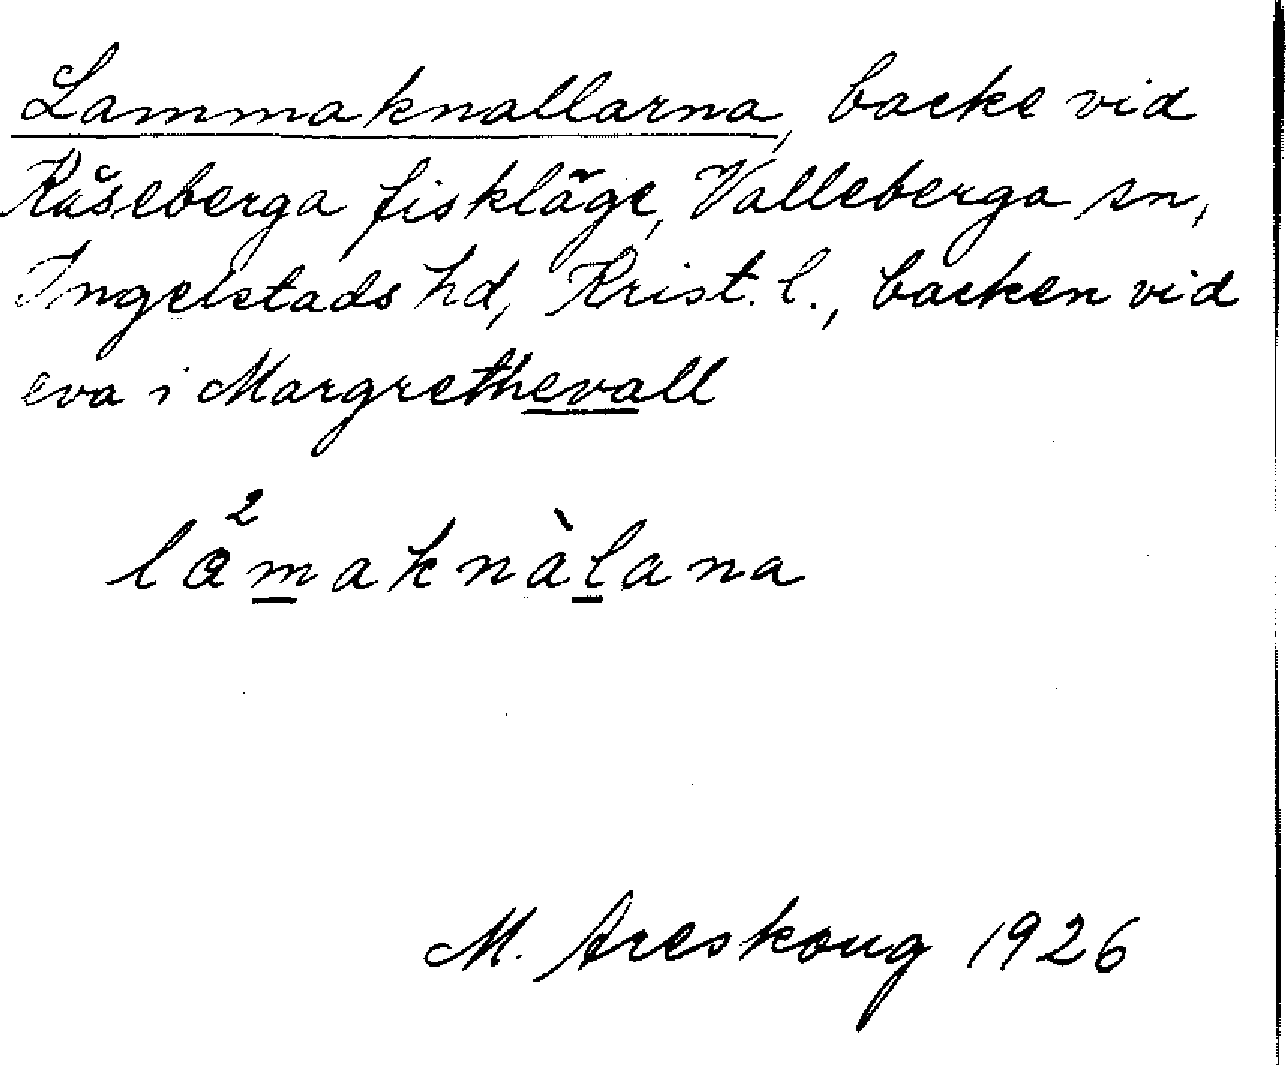 Lammaknallarna, backe vid
Kåseberga fiskläge, Valleberga sn,
Ingelstads hd, Krist. l., backen vid
eva i Margrethevall
la²maknàlana
M. Areskoug 1926